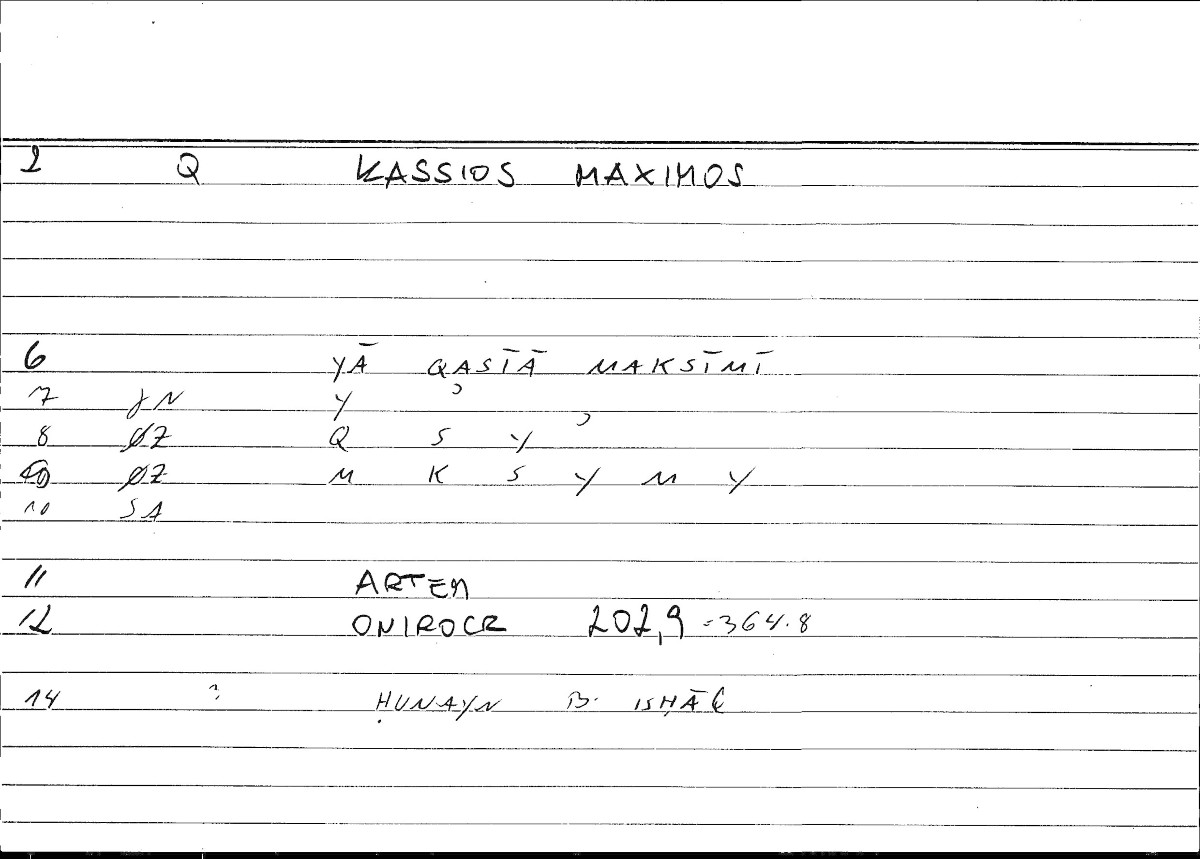 2 Q KASSIOS MAXIMOS
6 YĀ QASĪĀ MAKSĪMĪ
7 γN Y
8 ØZ Q S Y ʾ
ØZ M K S Y M Y
10 SA
11 ARTEM
12 ONIROCR 202,9 = 364.8
14 ? ḤUNAYN B. ISḤĀḲ